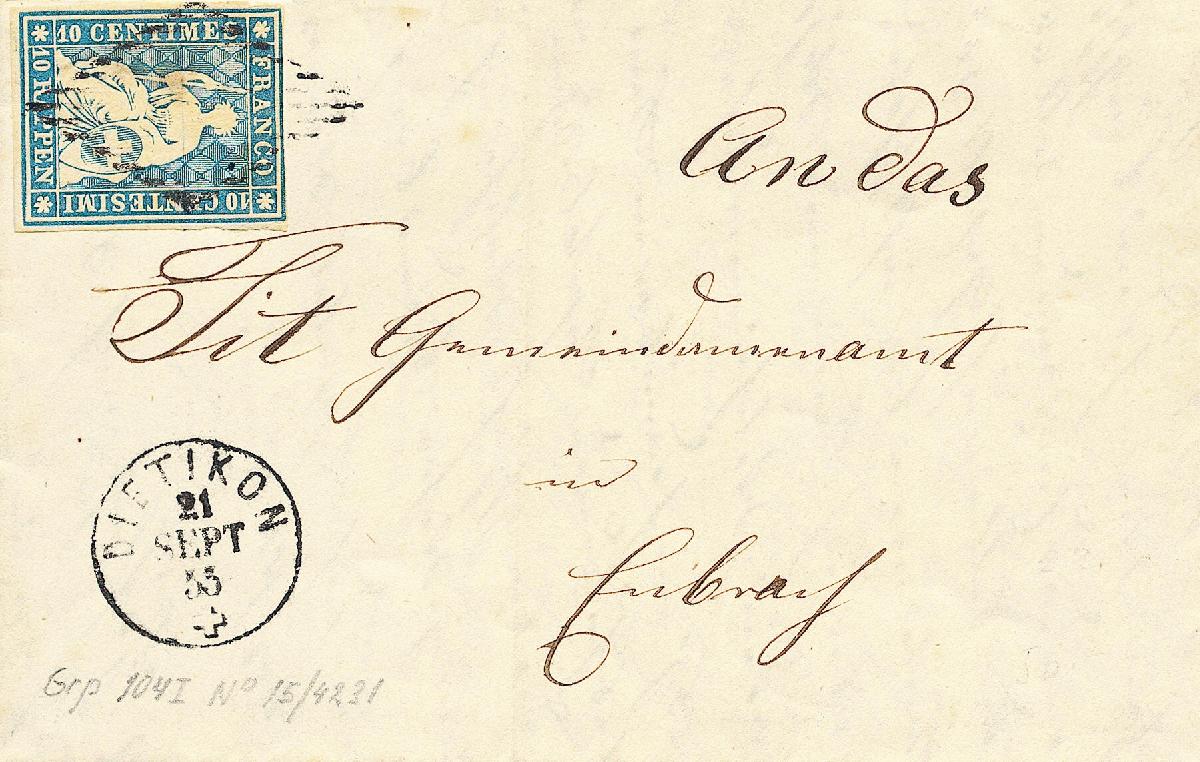 10 CENTIMES
FRANCO
10 CENTESIMI
10 RAPPEN
An das
Tit Gemeindammanamt
in
Embrach
DIETIKON
21
SEPT
55
Grp 104I No 15/4231